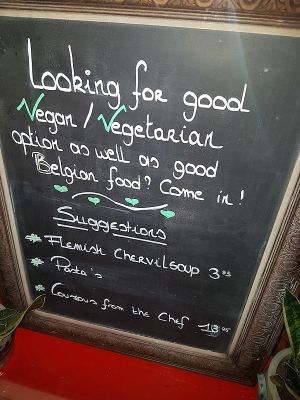 Looking for good
Vegan / Vegetarian
option as well as good
Belgian food? Come in!
Suggestions
* Flemish Chervilsoup 3,95
* Pasta's
* Couscous from the Chef 13,95